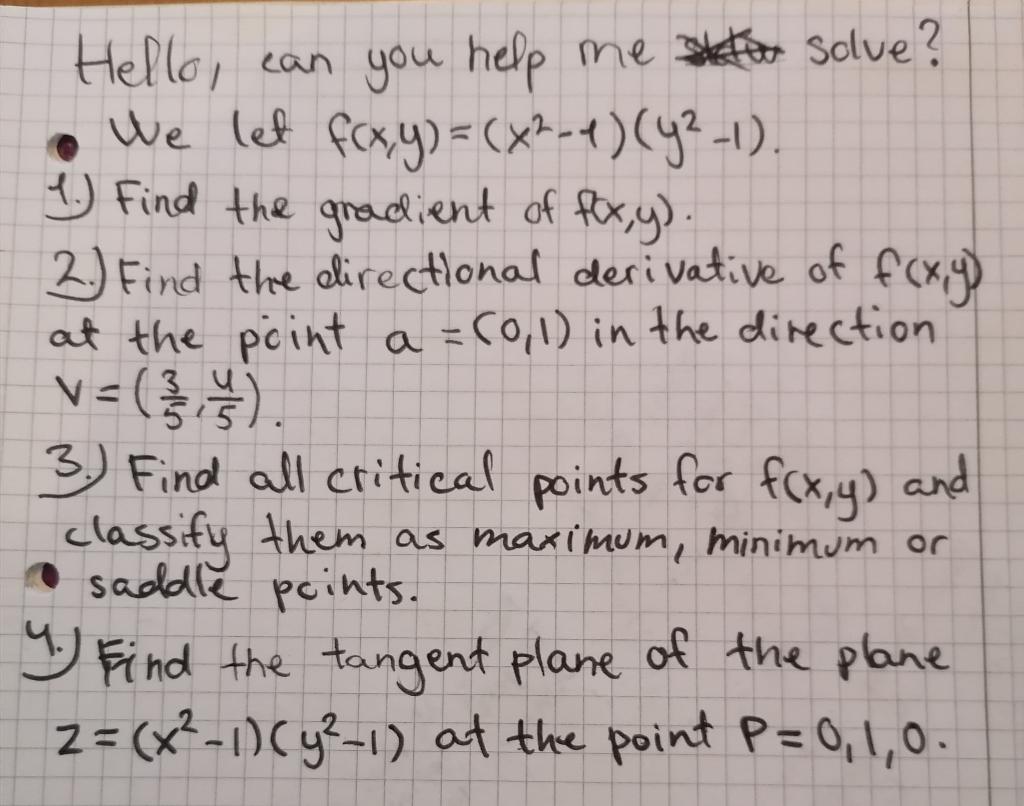 Hello, can you help me solve?
We let f(x,y)=(x²-1)(y²-1).
1.) Find the gradient of f(x,y).
2.) Find the directional derivative of f(x,y)
at the point a =(0,1) in the direction
v=(3/5,4/5).
3.) Find all critical points for f(x,y) and
classify them as maximum, minimum or
saddle points.
4.) Find the tangent plane of the plane
z=(x²-1)(y²-1) at the point P=0,1,0.